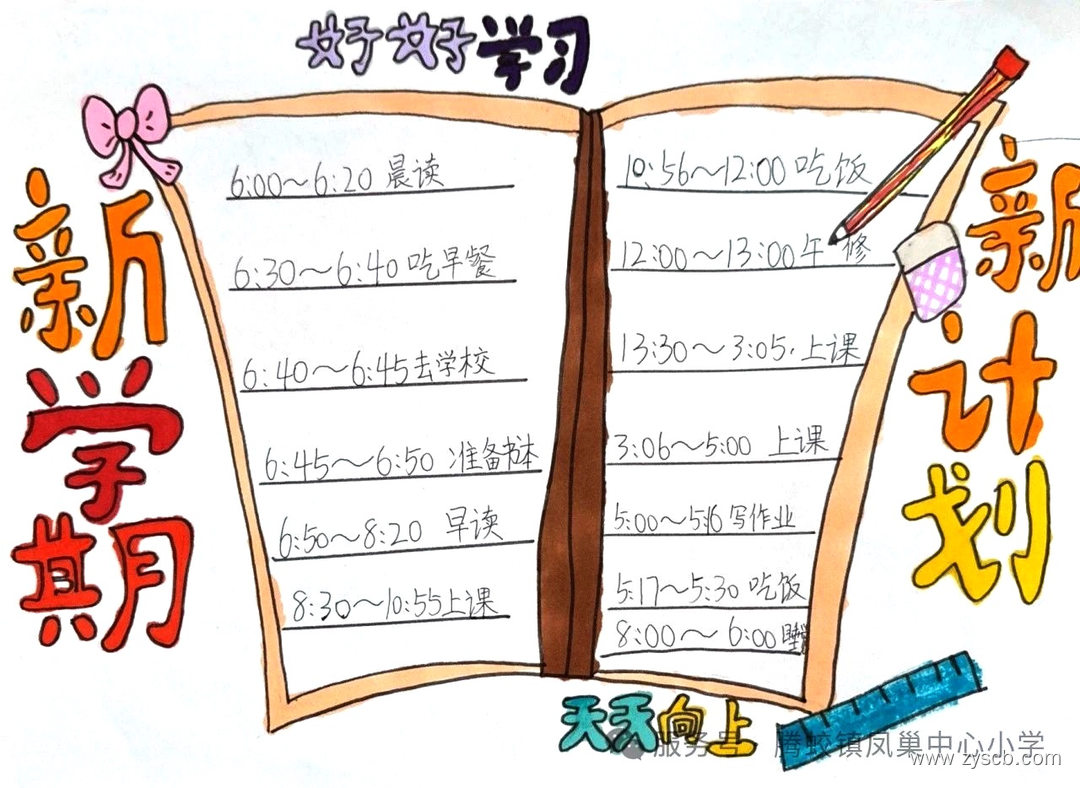 好好学习
新学期
新计划
6:00～6:20 晨读
6:30～6:40 吃早餐
6:40～6:45去学校
6:45～6:50 准备书本
6:50～8:20 早读
8:30～10:55上课
10:56～12:00 吃饭
12:00～13:00午 修
13:30～3:05.上课
3:06～5:00 上课
5:00～5:16 写作业
5:17～5:30 吃饭
8:00～6:00
天天向上
服务号 腾蛟镇凤巢中心小学
www.zyscb.com